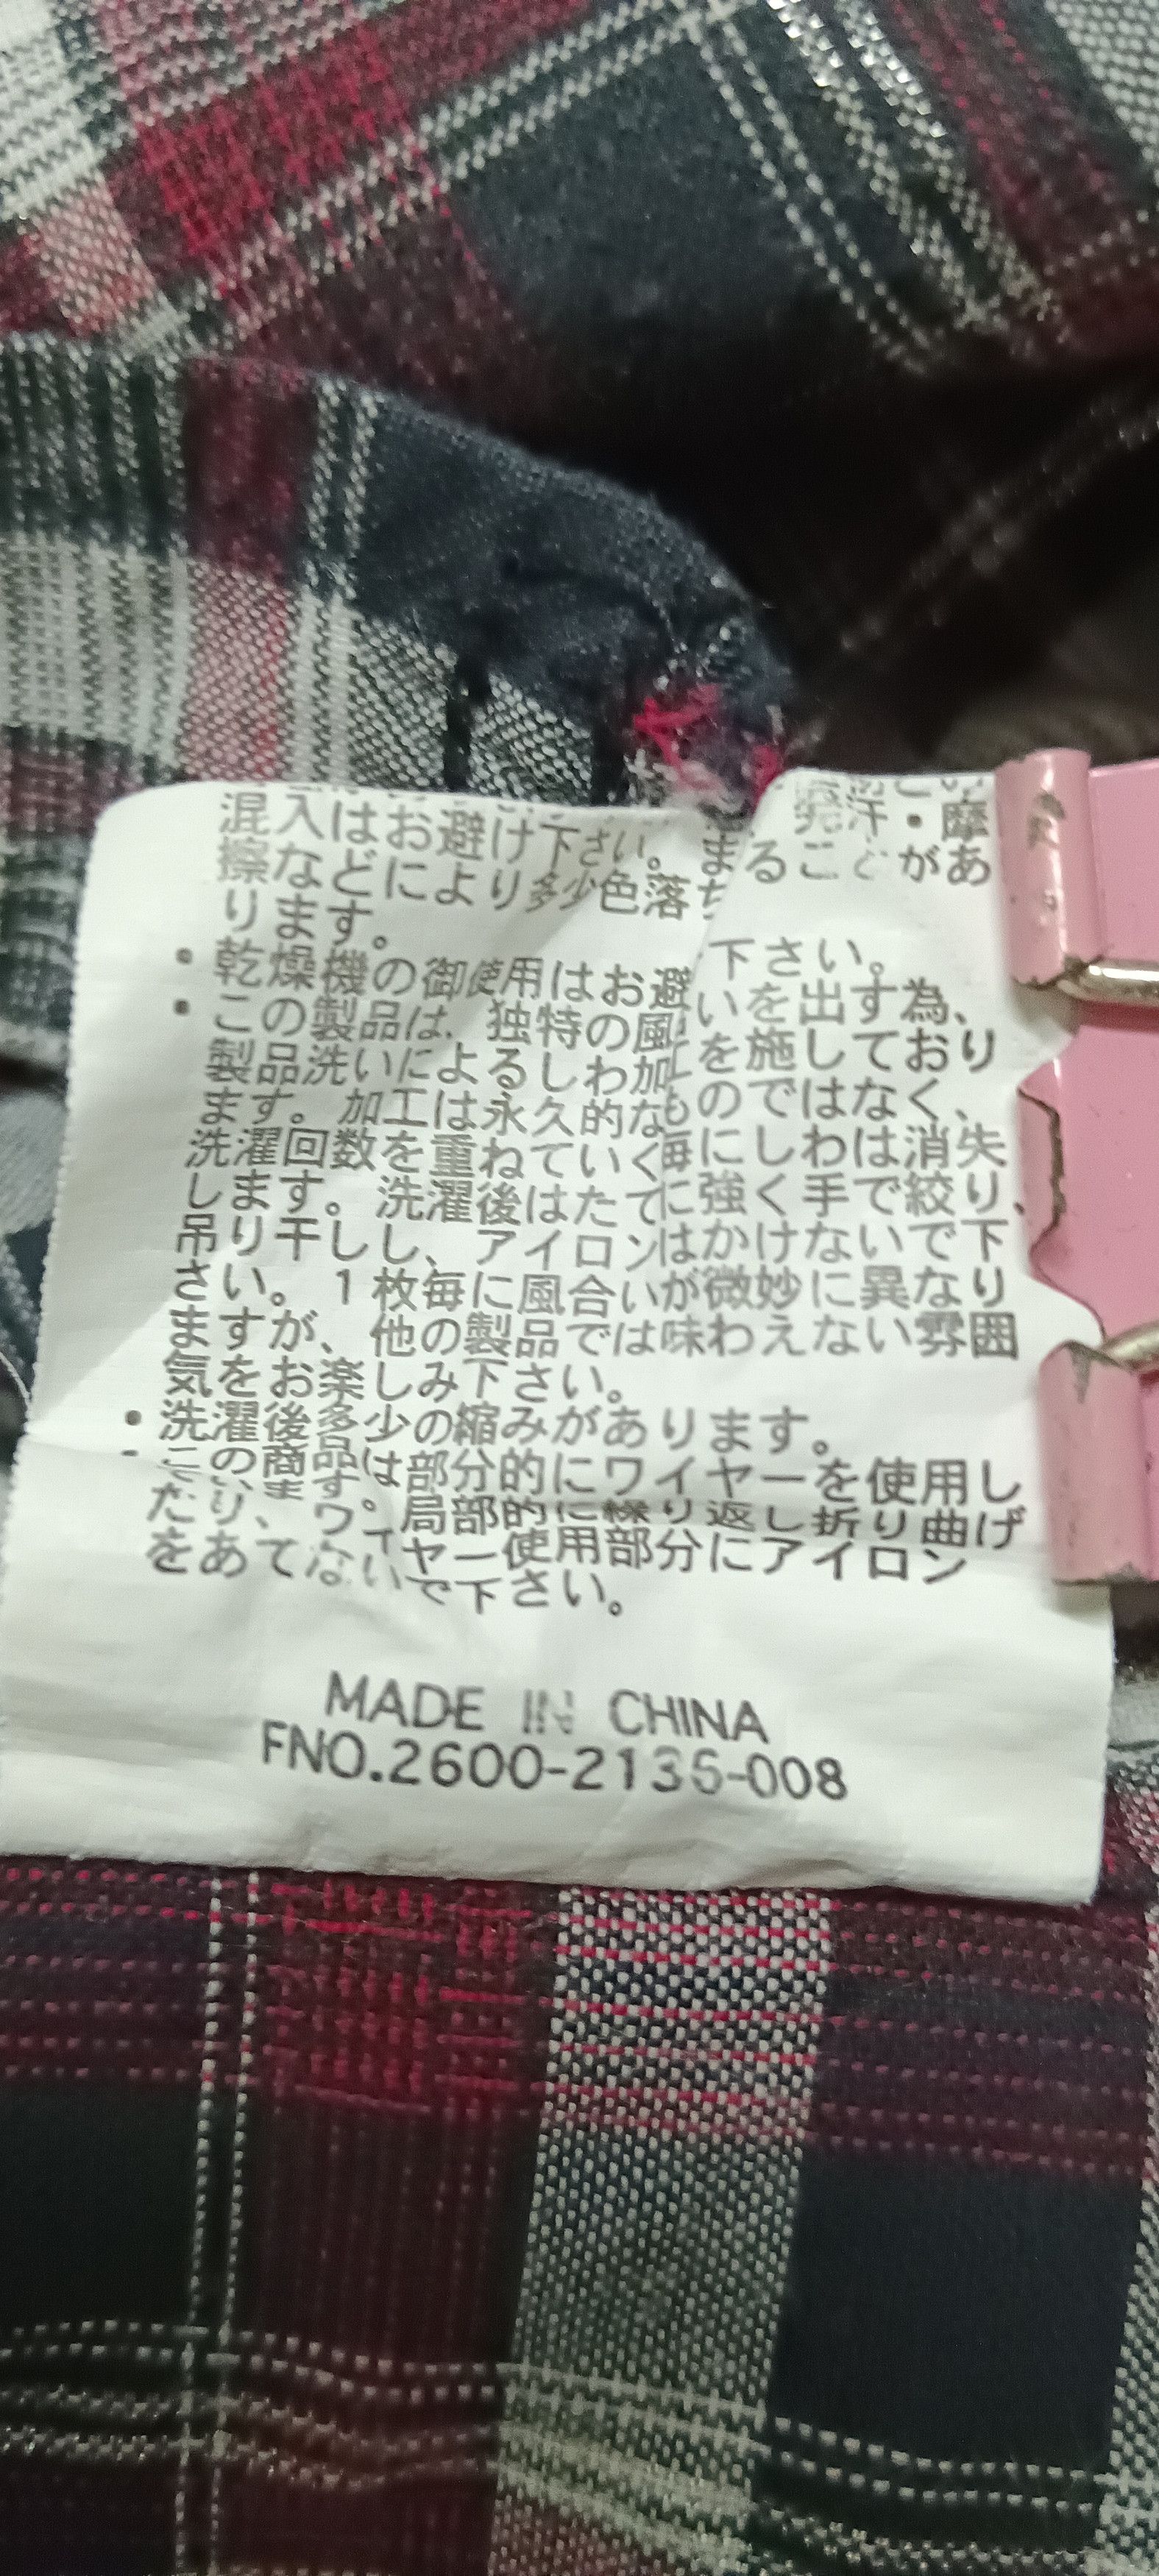 混入はお避け下さい。また、発汗・摩
擦などにより多少色落ちることがあ
ります。
・乾燥機の御使用はお避下さい。
・この製品は、独特の風いを出す為、
製品洗いによるしわ加工を施しており
ます。加工は永久的なものではなく、
洗濯回数を重ねていく毎にしわは消失
します。洗濯後はたてに強く手で絞り、
吊り干しし、アイロンはかけないで下
さい。1枚毎に風合いが微妙に異なり
ますが、他の製品では味わえない雰囲
気をお楽しみ下さい。
・洗濯後多少の縮みがあります。
・この商品は部分的にワイヤーを使用し
ます。局部的に繰り返し折り曲げ
たり、ワイヤー使用部分にアイロン
をあてないで下さい。
MADE IN CHINA
FNO.2600-2135-008